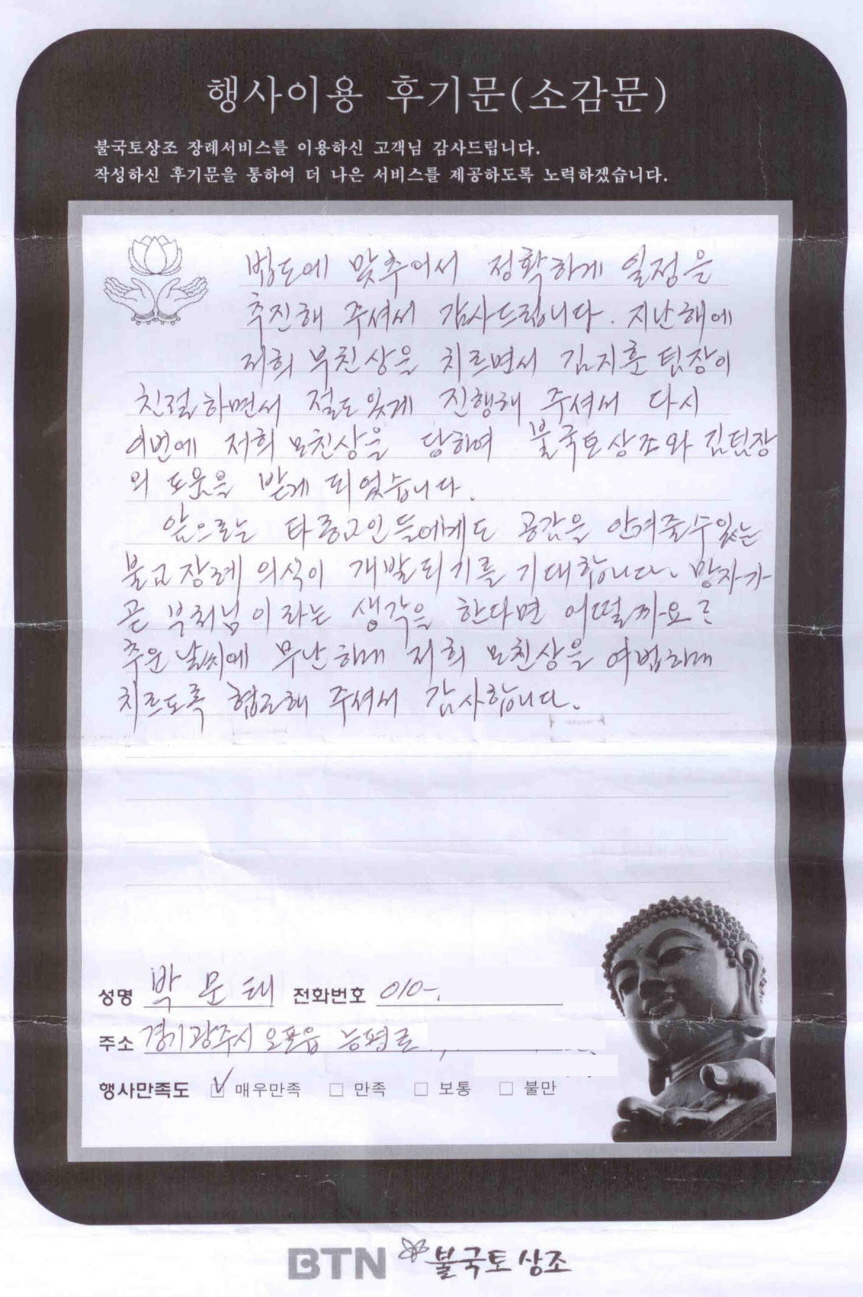 행사이용 후기문(소감문)
불국토상조 장례서비스를 이용하신 고객님 감사드립니다.
작성하신 후기문을 통하여 더 나은 서비스를 제공하도록 노력하겠습니다.
법도에 맞추어서 정확하게 일정을
추진해 주셔서 감사드립니다. 지난해에
저희 부친상을 치르면서 김지훈 팀장이
친절하면서 절도있게 진행해 주셔서 다시
이번에 저희 모친상을 당하여 불국토상조와 김팀장
의 도움을 받게 되었습니다.
앞으로는 타종교인들에게도 공감을 안겨줄수있는
불교장례 의식이 개발되기를 기대합니다. 망자가
곧 부처님이라는 생각을 한다면 어떨까요?
추운 날씨에 무난하게 저희 모친상을 여법하게
치르도록 협조해 주셔서 감사합니다.
성명 박문태 전화번호 010-
주소 경기광주시 오포읍 능평로
행사만족도 ☑ 매우만족 □ 만족 □ 보통 □ 불만
BTN 불국토상조